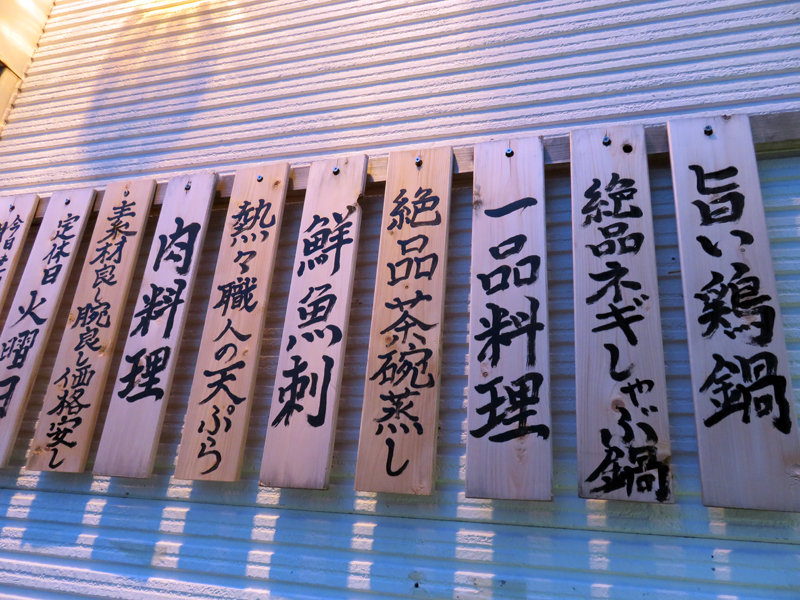 旨い鶏鍋
絶品ネギしゃぶ鍋
一品料理
絶品茶碗蒸し
鮮魚刺
熱々職人の天ぷら
肉料理
素材良し腕良し価格安し
定休日 火曜日
今日